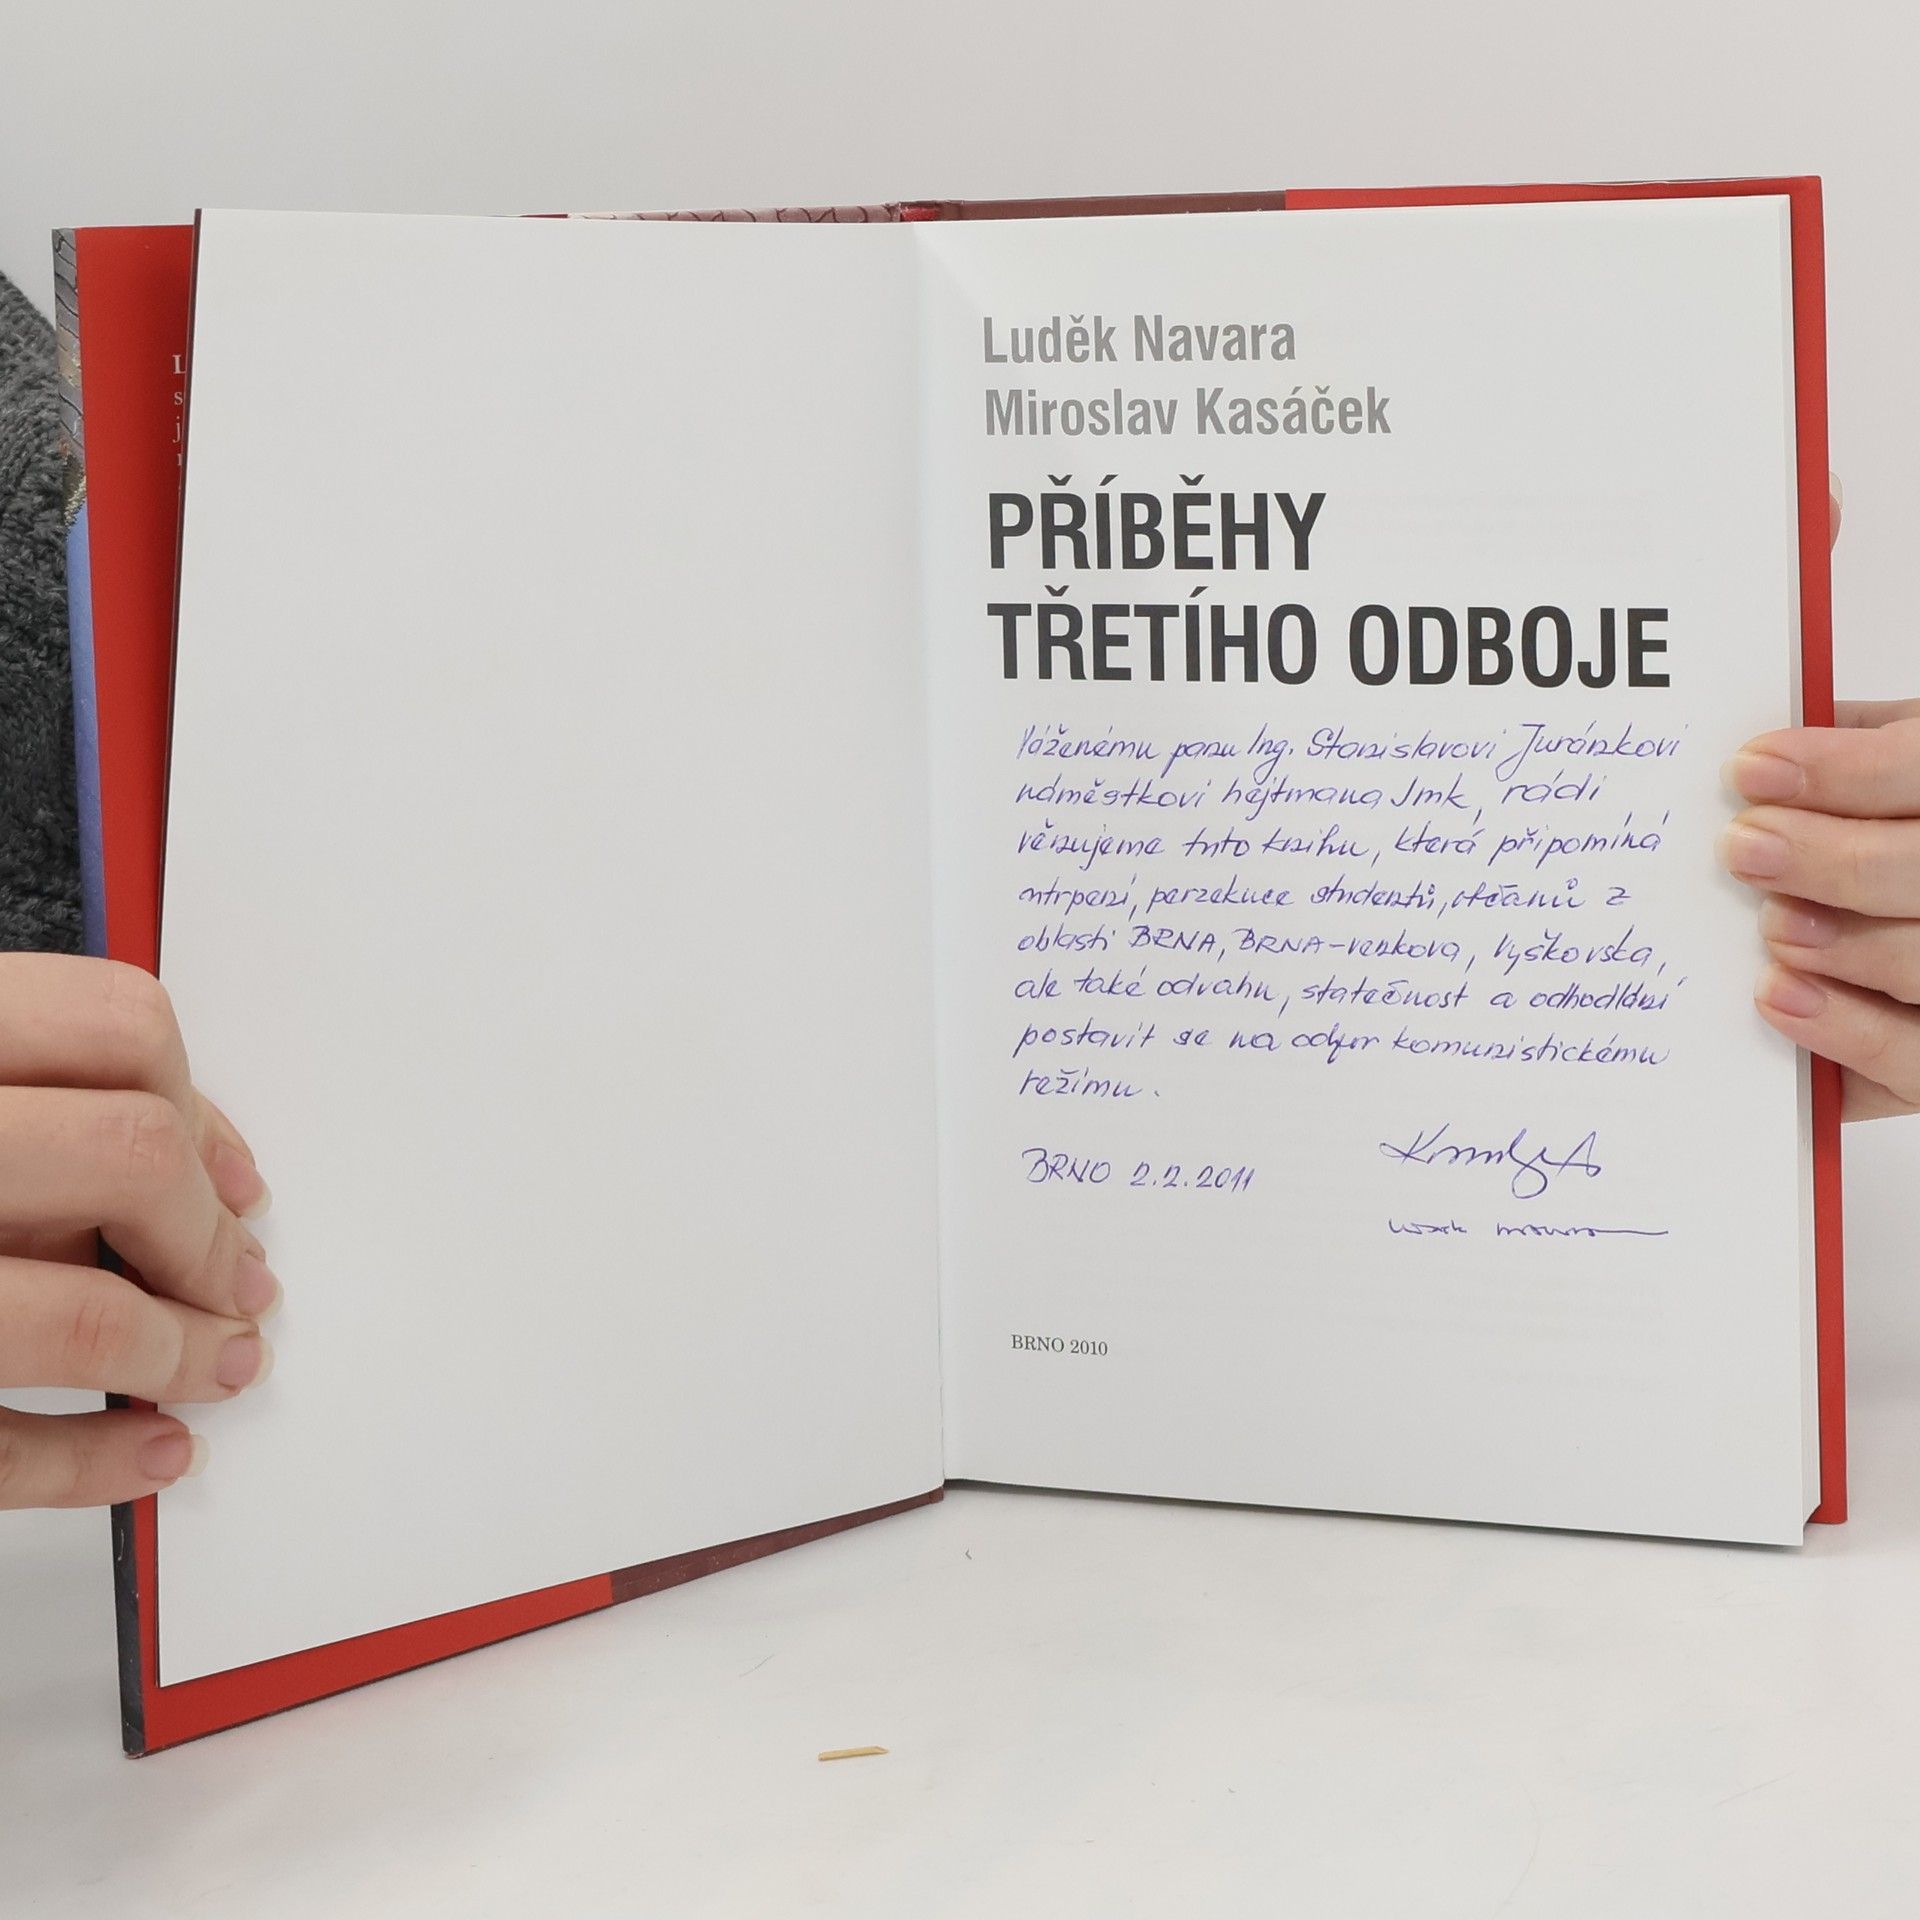 L
s
j
Luděk Navara
Miroslav Kasáček
PŘÍBĚHY
TŘETÍHO ODBOJE
Váženému panu Ing. Stanislavovi Juránkovi
náměstkovi hejtmana Jmk, rádi
věnujeme tuto knihu, která připomíná
utrpení, perzekuce studentů, občanů z
oblasti BRNA, BRNA-venkova, Vyškovska,
ale také odvahu, statečnost a odhodlání
postavit se na odpor komunistickému
režimu.
BRNO 2.2.2011
BRNO 2010